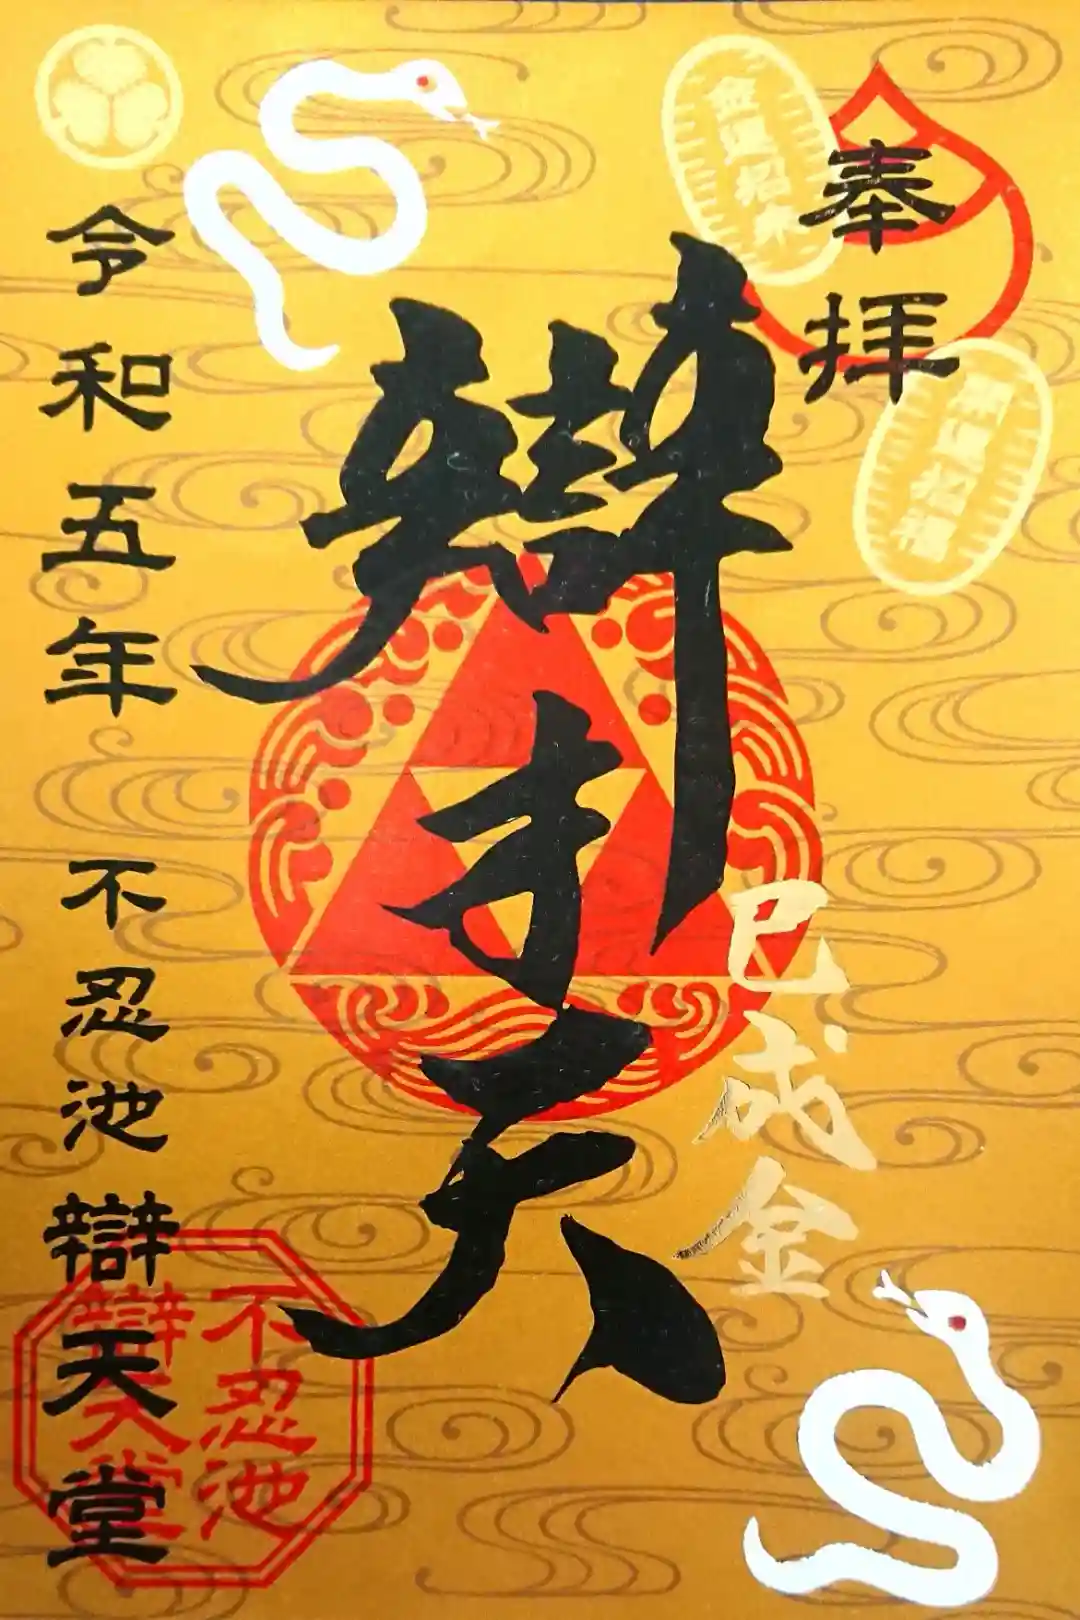 奉拝
金運招来
開運招福
辯才天
巳成金
令和五年 不忍池 辯天堂
不忍池
辯天堂